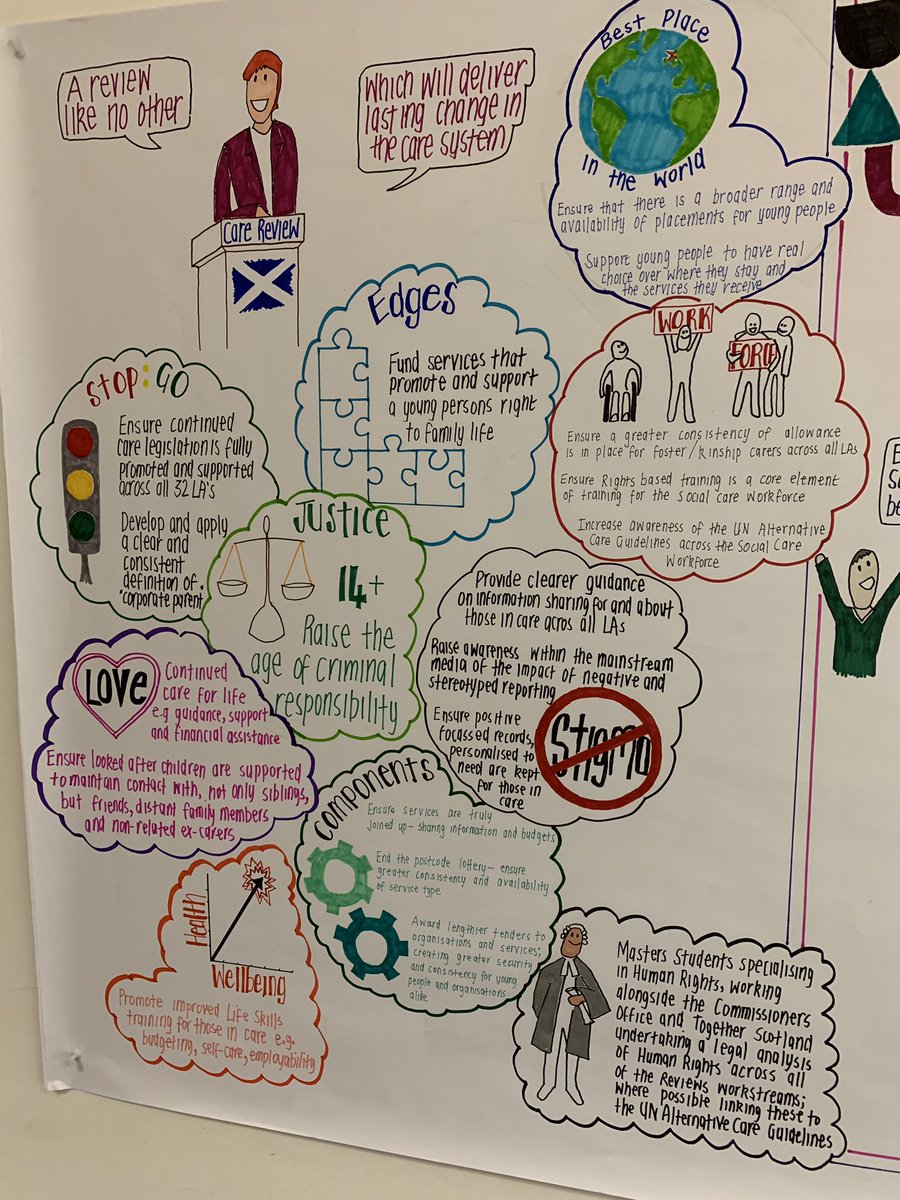 A review
like no other
Which will deliver
lasting change in
the care system
Care Review
Best Place
in the world
Ensure that there is a broader range and
availability of placements for young people
Support young people to have real
choice over where they stay and
the services they receive
Edges
Fund services that
promote and support
a young persons right
to family life
WORK
FORCE
Ensure a greater consistency of allowance
is in place for foster/kinship carers across all LAs
Ensure Rights based training is a core element
of training for the social care workforce
Increase awareness of the UN Alternative
Care Guidelines across the Social Care
Workforce
STOP:GO
Ensure continued
care legislation is fully
promoted and supported
across all 32 LA's
Develop and apply
a clear and
consistent
definition of
"corporate parent
Justice
14+
Raise the
age of criminal
responsibility
Provide clearer guidance
on information sharing for and about
those in care acros all LAs
Raise awareness within the mainstream
media of the impact of negative and
stereotyped reporting
Ensure positive
focassed records,
personalised to
need are kept
for those in
care
Stigma
LOVE
Continued
care for life
e.g guidance, support
and financial assistance
Ensure looked after children are supported
to maintain contact with, not only siblings,
but friends, distant family members
and non-related ex-carers
Components
Ensure services are truly
joined up- sharing information and budgets
End the postcode lottery- ensure
greater consistency and availability
of service type
Award lengthier tenders to
organisations and services;
creating greater security
and consistency for young
people and organisations
alike
Health
Wellbeing
Promote improved Life Skills
training for those in care e.g.
budgeting, self-care, employability
Masters Students specialising
in Human Rights, working
alongside the Commissioners
Office and Together Scotland
undertaking a legal analysis
of Human Rights across all
of the Reviews workstreams;
where possible linking these to
the UN Alternative Care Guidelines